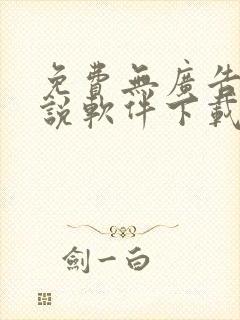 免費無廣告
說軟件下載
劍一白